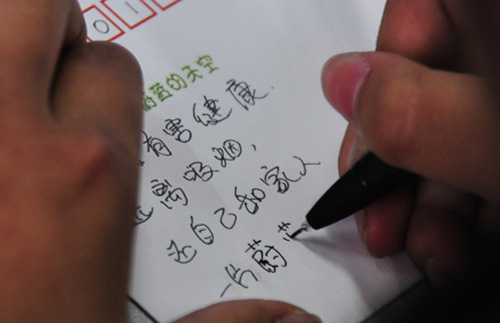 0 1
蓝的天空
有害健康.
远离吸烟,
还自己和家人
一片蔚